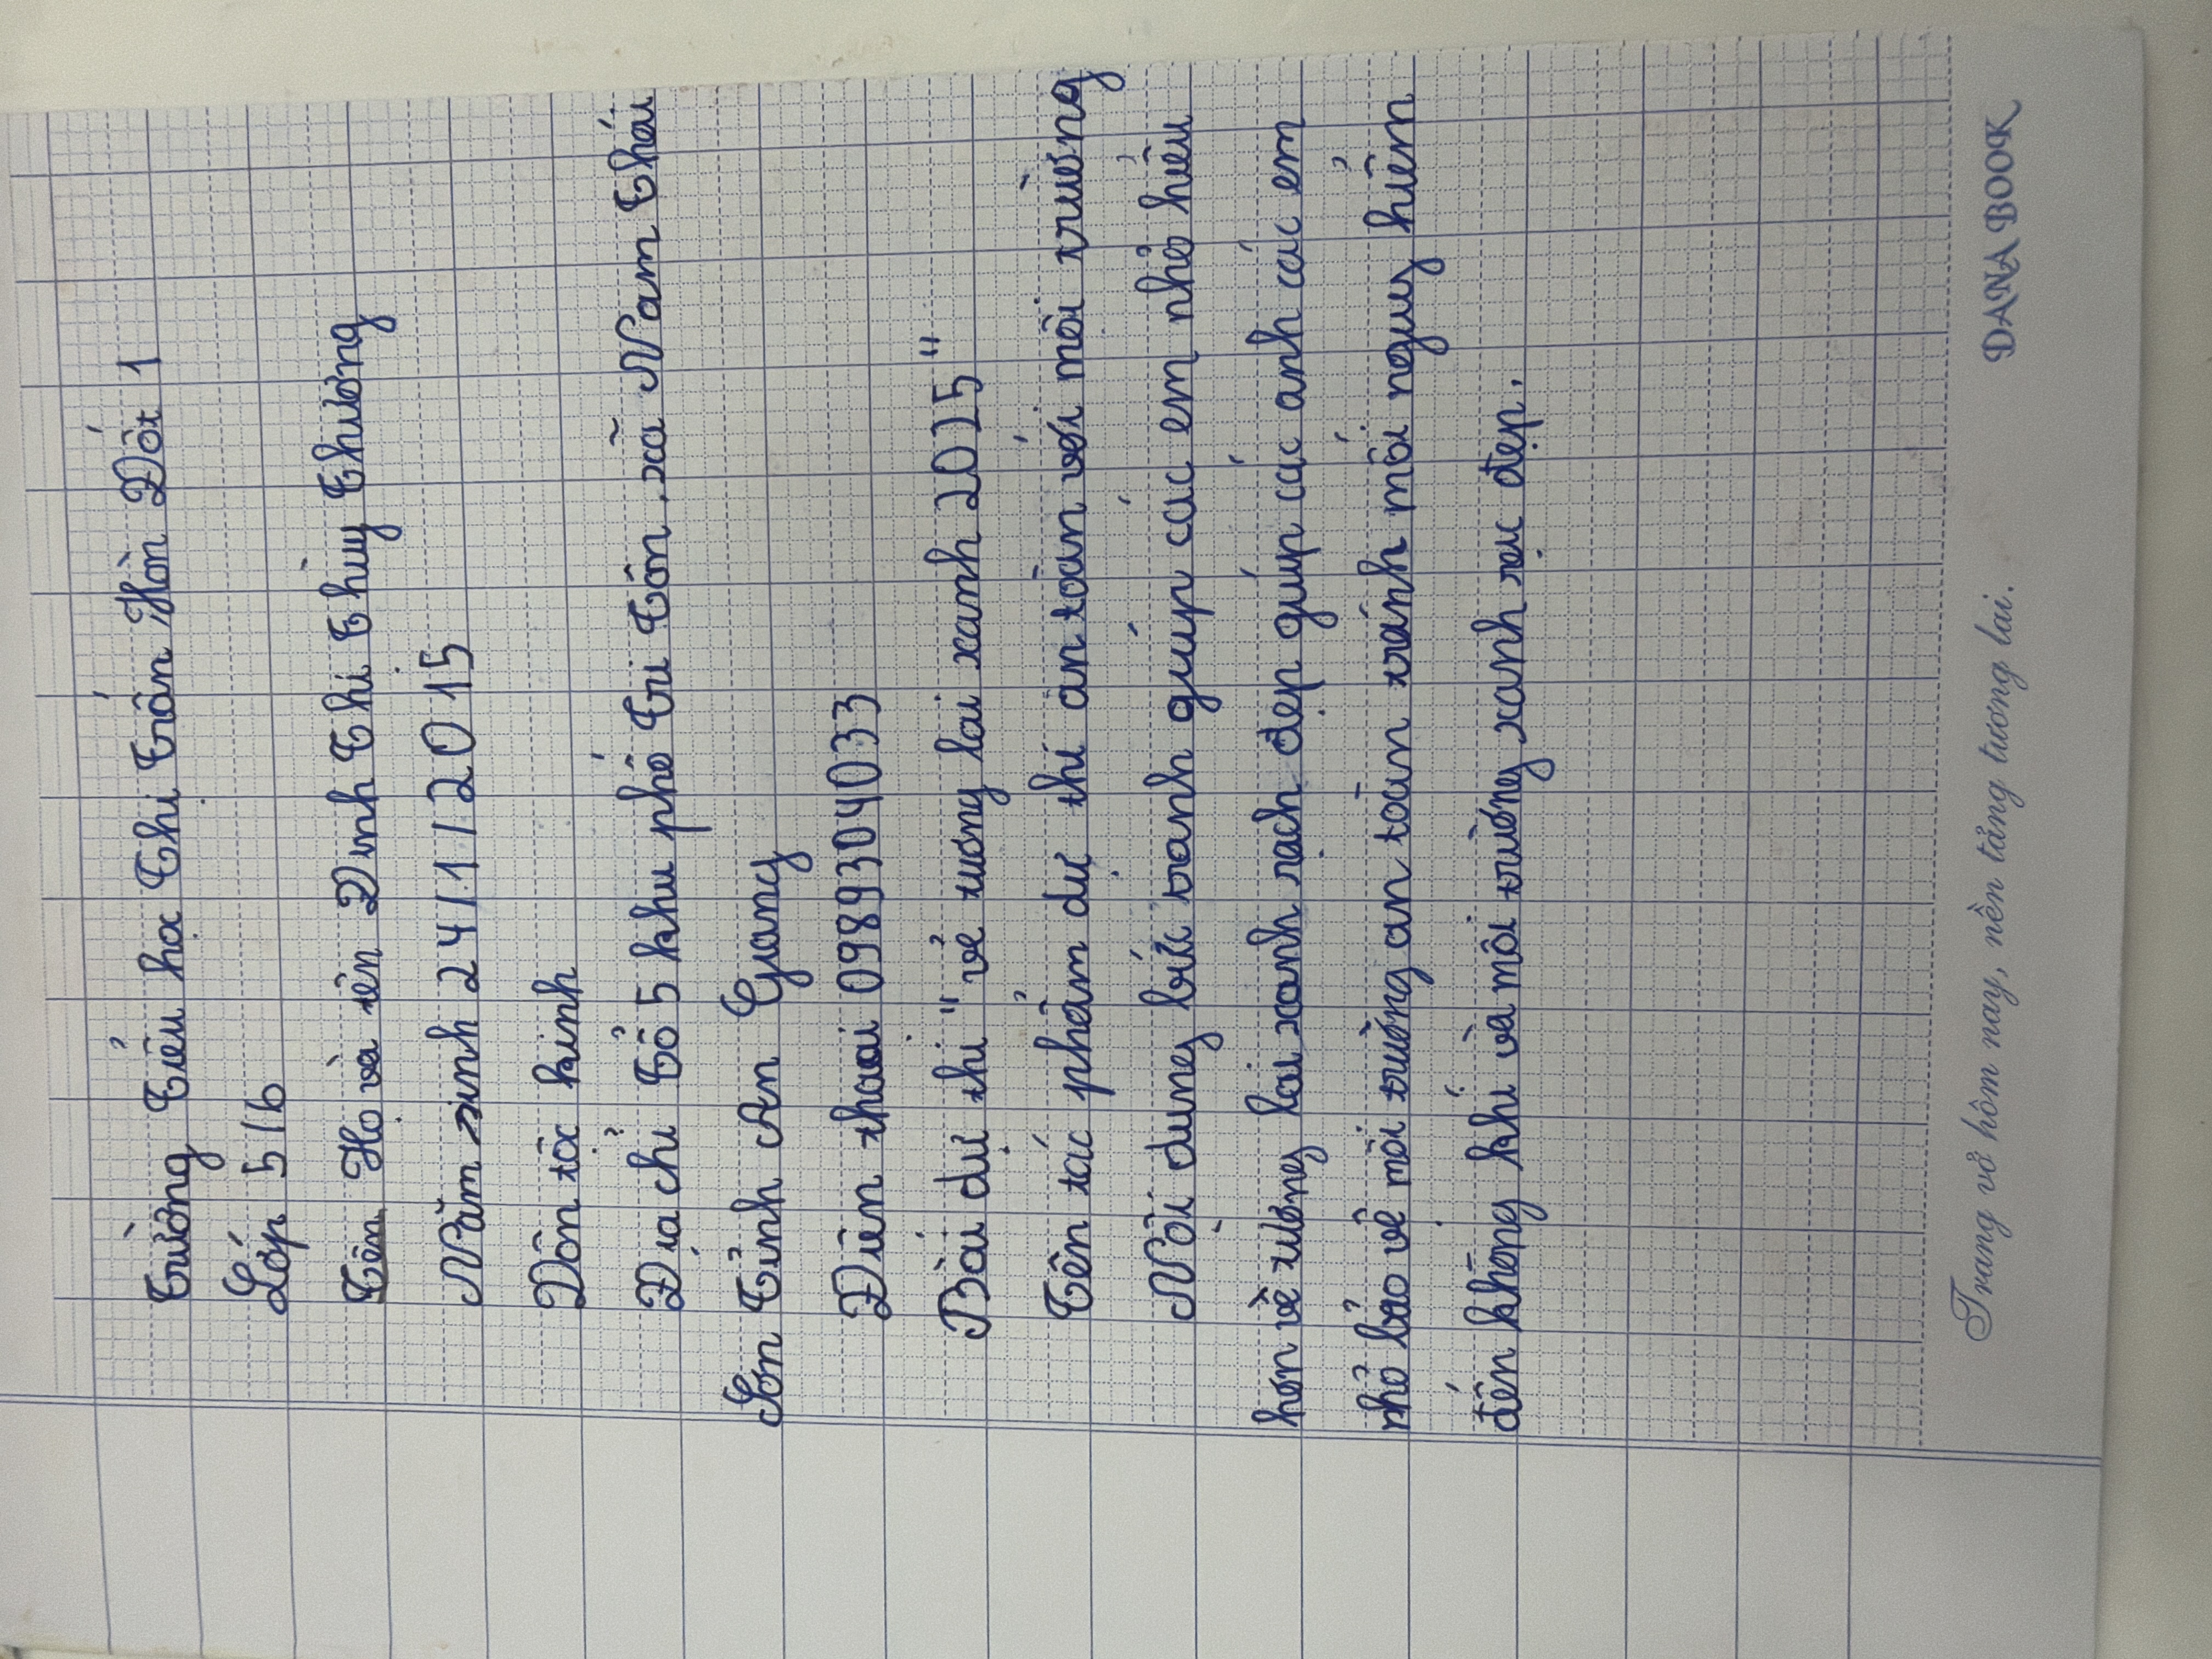 Trường Tiểu học Thị Trấn Hòn Đất 1
Lớp 5/6
Tên Họ và tên Đinh Thị Thùy Thương
Năm sinh 24/1/2015
Dân tộc kinh
Địa chỉ Tổ 5 khu phố Tri Tôn, xã Nam Thái
Sơn Tỉnh An Giang
Điện thoại 0989304033
Bài dự thi "vẽ tương lai xanh 2025"
Tên tác phẩm dự thi an toàn với môi trường
Nội dung bức tranh giúp các em nhỏ hiểu
hơn về tương lai xanh sạch đẹp giúp các anh các em
nhỏ bảo vệ môi trường an toàn tránh mối nguy hiểm
đến không khí và môi trường xanh sạc đẹp.
Trang vở hôm nay, nền tảng tương lai.
DANA BOOK